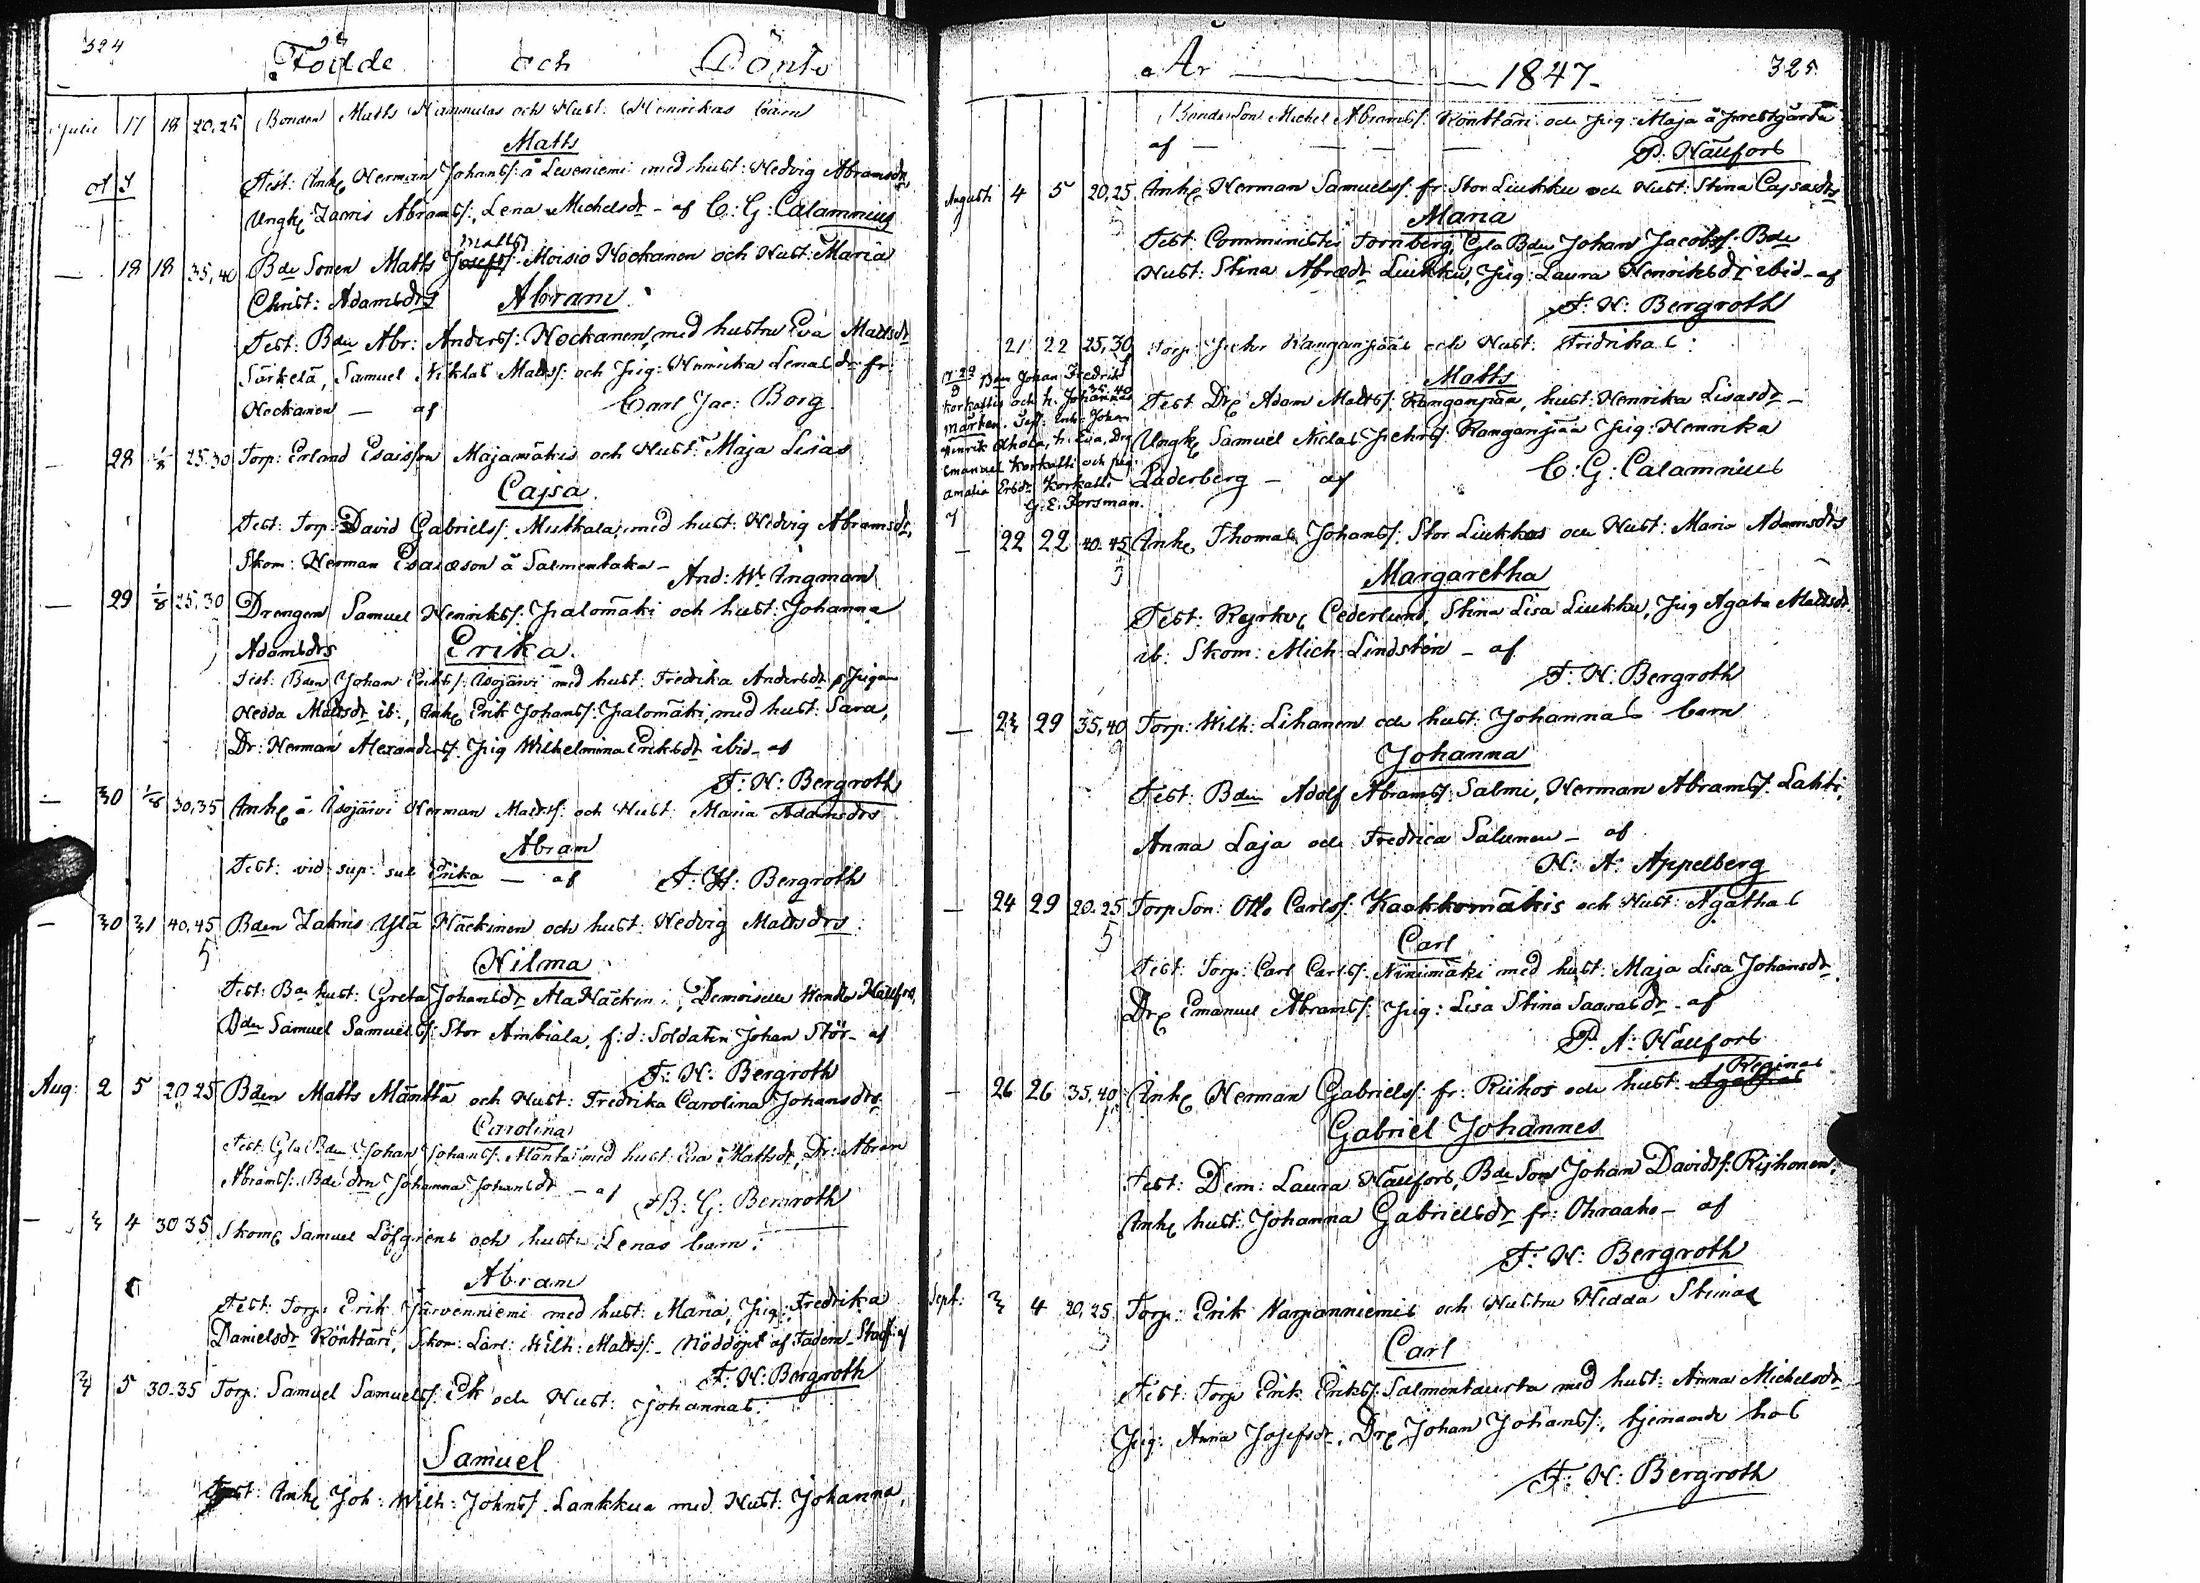 324
Födde och Döpte
Julii 17 18 20,25 Bonden Matts Hannulas och Hust: Henrikas barn
Matts
Test: Inhs Herman Johanss: å Leveniemi med hust: Hedvig Abramsdr,
Ungk Zacris Abramss:, Lena Michelsdr - af C: G: Calamnius
— 18 18 35,40 Bde Sonen Matts Mattss Moisio Hockanen och Hust: Maria
Christ: Adamsdrs Abram
Test: Bden Abr: Anderss: Hockanen, med hustru Eva Mattsdr
Särkelä, Samuel Niklas Matss: och Pig: Henrika Lenasdr fr:
Hockanen — af Carl Jac: Borg
— 28 1/8 25.30 Torp: Erland Esaisson Majamäkis och Hust: Maja Lisas
Cajsa
Test: Torp: David Gabrielss: Muttkala, med hust: Hedvig Abramsdr,
Skom: Herman Esaiæson å Salmentaka - And: W: Ingman
— 29 1/8 25,30 Drengen Samuel Henrikss: Palomäki och hust: Johanna
Adamsdrs Erika
Test: Bden Johan Erikss: Isojärvi med hust: Fredrika Andersdr, Pigan
Hedda Mattsdr ib:, Inhs Erik Johanss: Palomäki, med hust: Sara,
Dr: Herman Alexanderss: Pig Wilhelmina Eriksdr ibid - af
F: H: Bergroth
— 30 1/8 30,35 Inhs å Isojärvi Herman Mattss: och Hust: Maria Adamsdrs
Abram
Test: vid: sup: sub Erika — af F: H: Bergroth
— 30 31 40,45 Bden Zakris Ylä Häckinen och hust: Hedvig Mattsdrs:
5
Hilma
Test: Bde hust: Greta Johansdr Ala Häckin:, Demoiselle Wendla Hällfors,
Bden Samuel Samuelss: Stor Ambiala, f: d: Soldaten Johan Stör - af
F: H: Bergroth
Aug: 2 5 20 25 Bden Matts Mänttä och Hust: Fredrika Carolina Johansdrs:
Carolina
Test: Gla Bden Johan Johanss: Mänttä med hust: Eva Mattsdr, Dr: Abram
Abramss: Bde dtn Johanna Johansdr — af F B: G: Bergroth
— 3 4 30 35 Skoms Samuel Löfgrens och hust: Lenas barn:
Abram
Test: Torp: Erik Järvenniemi med hust: Maria, Pig: Fredrika
Danielsdr Könttäri, Skom: Carl: Wilh: Mattss: - Nöddöpt af Fadern - Staff: af
F: H: Bergroth
3 5 30-35 Torp: Samuel Samuelss: Ek och Hust: Johannas:
Samuel
Test: Inhs Joh: Wilh: Johnss: Lankkua med Hust: Johanna,
År 1847- 325
Bonde Son Michel Abramss: Könttäri och Pig: Maja å Prestgården
af — P. Hällfors
Augusti 4 5 20,25 Inhs Herman Samuelss: fr: Stor Liukku och Hust: Stina Cajsasdrs
Maria
Test: Comministri Tornberg, Gla Bden Johan Jacobss: Bde
Hust: Stina Abr:dr Liukku, Pig: Laura Henriksdr ibid - af
F: H: Bergroth
21 22 25,30 Torp: Pehr Kanganpääs och Hust: Fredrikas:
Matts
Test: Drs Adam Mattss: Kanganpää, hust: Henrika Lisasdr -
Ungk Samuel Niclas Pehrss: Kanganpää Pig: Henrika
Laderberg - af C: G: Calamnius
17 29 Bden Johan Fredrik
Korkattis och h. Johannas 35 40
Mårten. Test: Inh: Johan
Henrik Ahola, h. Eva, Drs
Emanuel Korkatti och Pig:
Amalia Ersdr Korkatti
af G. E. Forsman.
— 22 22 40-45 Inhs Thomas Johanss: Stor Liukkos och Hust: Maria Adamsdrs
5
Margaretha
Test: Kyrkv: Cederlund, Stina Lisa Liukku, Pig Agata Mattsdr
ib: Skom: Mich: Lindstén - af
F: H: Bergroth
— 23 29 35,40 Torp: Wilh: Lihanen och hust: Johannas barn
Johanna
Test: Bden Adolf Abramss: Salmi, Herman Abramss: Lahti,
Anna Laja och Fredrica Salunen - af
N: A: Appelberg
— 24 29 20-25 Torp Son: Otto Carlss: Kaakkomäkis och Hust: Agathas
5
Carl
Test: Torp: Carl Carlss: Ninimäki med hust: Maja Lisa Johansdr
Drs Emanuel Abramss: Pig: Lisa Stina Saarasdr - af
P. A: Hällfors
— 26 26 35,40 Inhs Herman Gabrielss: fr: Riihos och hust: Agathas Reginas
Gabriel Johannes
Test: Dem: Laura Hällfors, Bde Son Johan Davidss: Riihonen,
Inhs hust: Johanna Gabrielsdr fr: Ohraaho - af
F: H: Bergroth
Sept: 3 4 20,25 Torp: Erik Varpanniemis och Hustru Hedda Stinas
Carl
Test: Torp Erik Erikss: Salmentausta med hust: Anna Michelsdr
Pig: Anna Josefsdr, Drs Johan Johanss:, tjenande hos
F: H: Bergroth